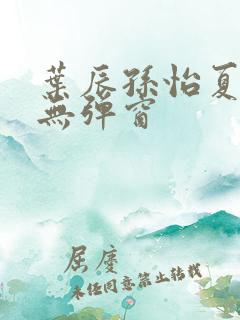 葉辰孫怡夏
無彈窗
屈慶
未經同意禁止轉載